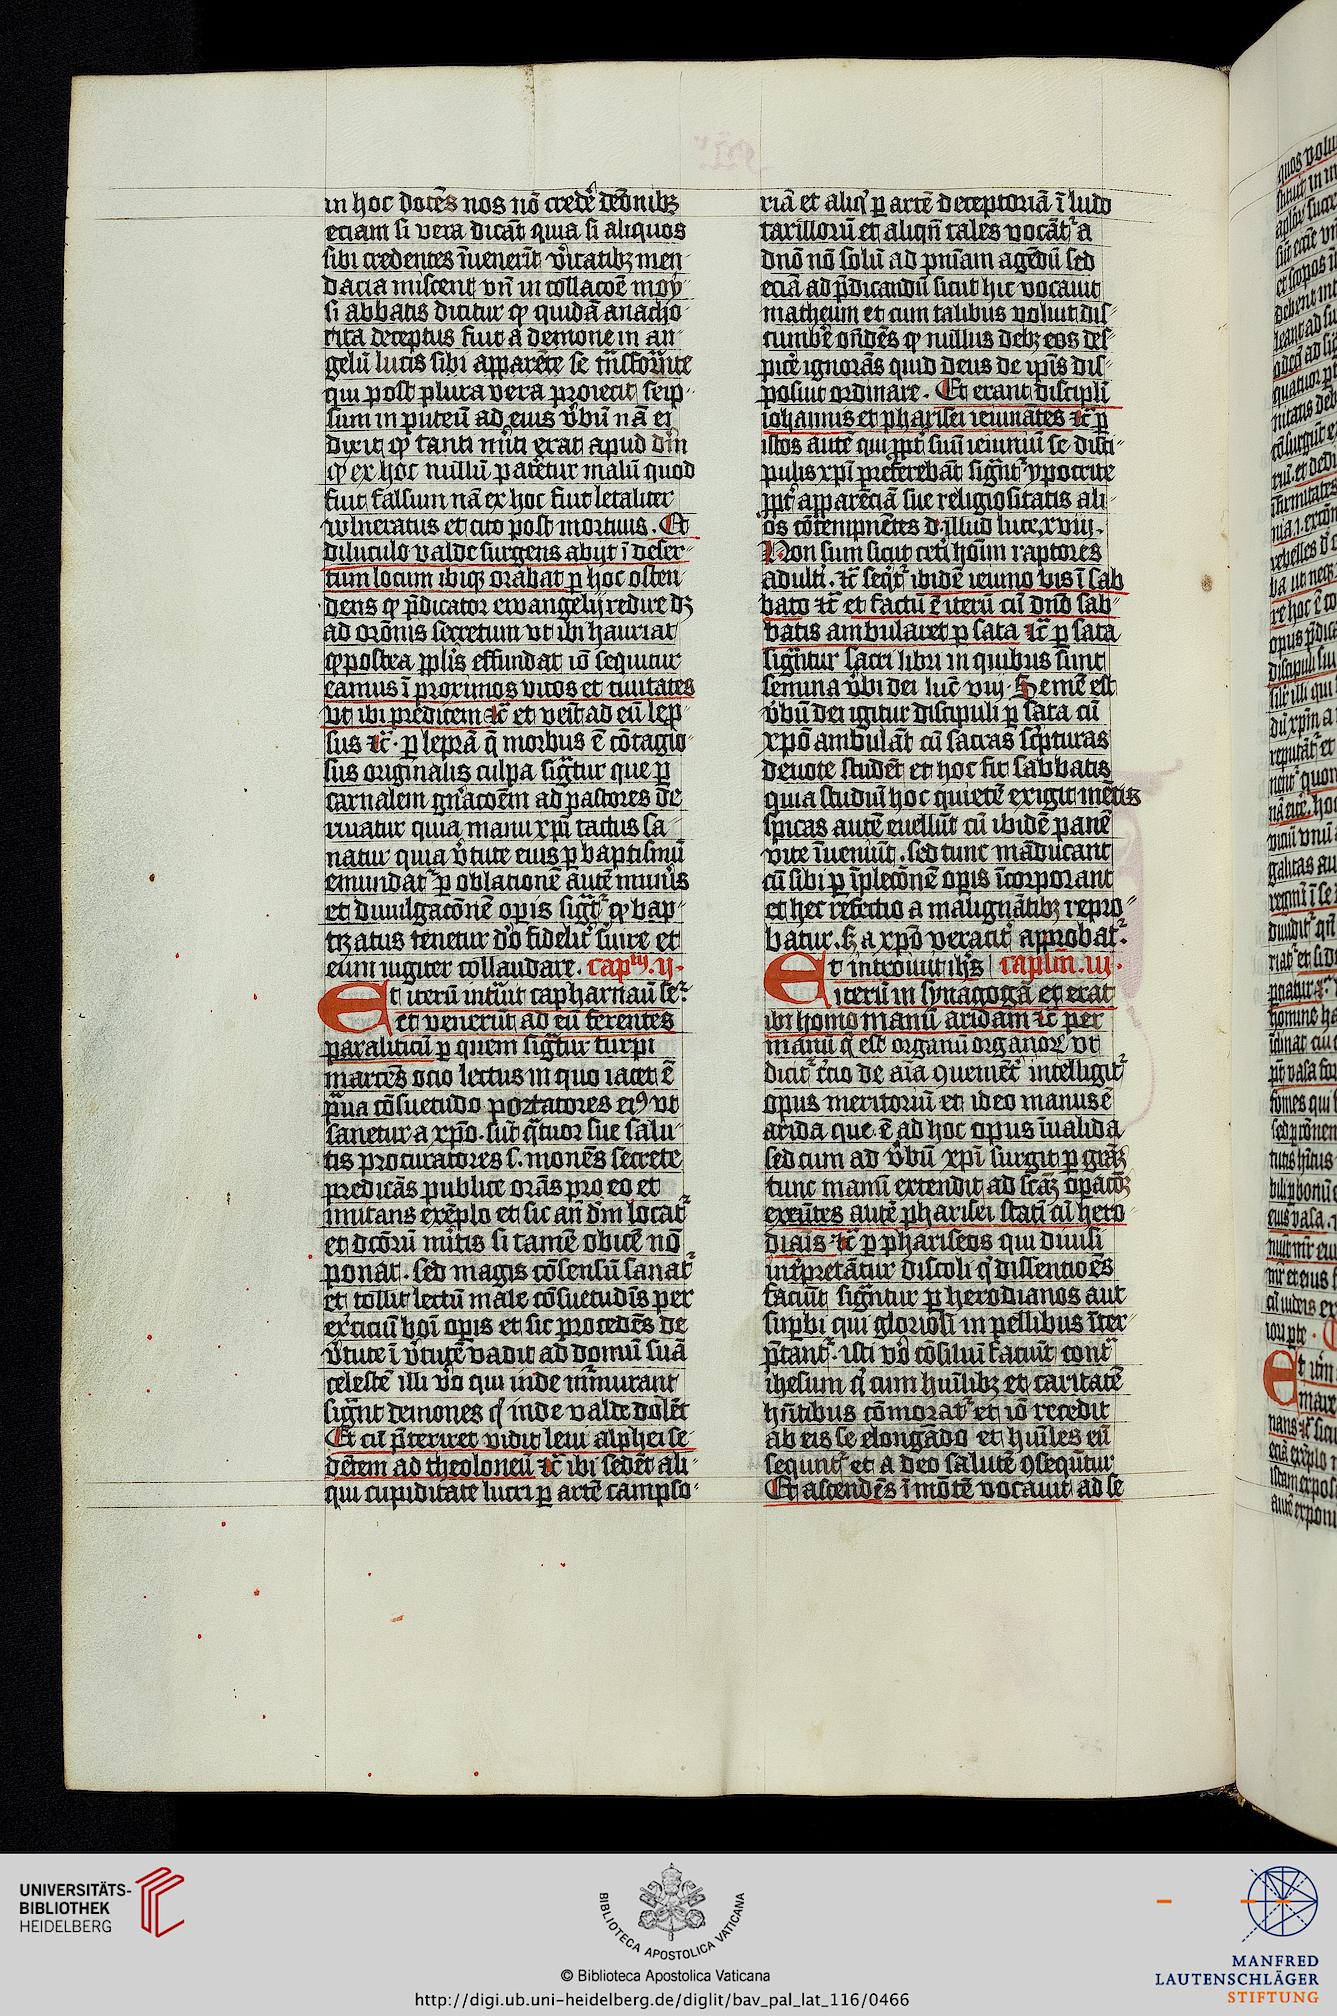 in hoc docēs nos nō credē demōnibꝫ
eciam si vera dicāt quia si aliquos
sibi credentes īuenerīt v̓itatibꝫ men
dacia miscent vn̄ in collacōe moy
si abbatis dicitur ꝙ quidā anacho
rita deceptus fuit a demone in an
gelū lucis sibi apparēte se
qui post plura vera proiecit seip
sum in puteū ad eius v̓bū nā ei
dixit ꝙ tanti m̄iti erat apud dn̄m
ꝙ ex hoc nullū pateretur malū quod
fuit falsum nā ex hoc fuit letaliter
vulneratus et cito post mortuus . Et
diluculo valde surgens abijt ī deser
tum locum ibiqꝫ orabat ꝑ hoc osten
dens ꝙ p̄dicator ewangelij redire dꝫ
ad orōnis secretum vt ibi hauriat
ꝙ postea pplis effundat iō sequitur
eamus ī proximos vicos et ciuitates
vt ibi predicem ⁊c̄ et venit ad eū lep
sus ⁊c̄ . ꝑ leprā q̄ morbus ē cōtagio
sus originalis culpa sigt̄ur que ꝑ
carnalem gn̄acōem ad pastores de
riuatur quia manu xp̄i tactus sa
natur quia v̓tute eius ꝑ baptismū
emundat̄ ꝑ oblationē autē mun̄is
et diuulgacōnē operis sigt̄ ꝙ bap
tizatus tenetur d̓o fidelit̓ s̓uire et
eum iugiter collaudare . capᵐ . ij .
Et iterū intūit capharnaū se
et venerūt ad eū ferentes
paraliticū ꝑ quem sigt̄ur turpi
marcēs ocio lectus in quo iacet ē
praua cōsuetudo portatores eiꝰ vt
sanetur a xp̄o . sūt q̄tuor sue salu
tis procuratores s. monēs secrete
predicās publice orās pro eo et
imitans exēplo et sic an̄ dn̄m locat̄
et dcōrū mītis si tamē obicē nō
ponat . sed magis cōsensū sanat̄
et tollit lectū male cōsuetudīs per
exercitiū boni opis et sic procedēs de
v̓tute ī v̓tutē vadit ad domū suā
celestē illi v̓o qui inde murmurant
sign̄t demones q̓ inde valde dolēt
Et cū p̄teriret vidit leui alphei se
dētem ad theoloneū ⁊c̄ ibi sedēt ali
qui cupiditate lucri ꝑ artē campso
riā et aliqͥ ꝑ artē deceptoriā ī ludo
taxillorū et aliqn̄ tales vocāt̄ a
dn̄o nō solū ad pn̄iam agēdū sed
eciā ad p̄dicandū sicut hic vocauit
matheum et cum talibus voluit dis
cumbe on̄dēs ꝙ nullus debꝫ eos des
pice ignorās quid deus de ip̄is dis
posuit ordinare . Et erant discipli
iohannis et pharisei ieiunātes ⁊c̄ ꝑ
istos autē qui ꝓpt̓ suū ieiuniū se disci
pulis xp̄i preferebāt sign̄t̄ ypocrite
ꝓpt̓ apparēciā sue religiositatis ali
os cōtempnētes d. illud luce . xviij .
Non sum sicut ceti hoīm raptores
adulti . ⁊c̄ seqt̄ ibidē ieiuno bis ī sab
bato ⁊c̄ et factū ē iterū cū dn̄o sab
batis ambularet ꝑ sata ⁊c̄ ꝑ sata
sign̄tur sacri libri in quibus sunt
semina v̓bi dei luc̄ viij . Semē est
v̓bū dei igitur discipuli ꝑ sata cū
xp̄o ambulāt cū sacras scpturas
deuote studēt et hoc fit sabbatis
quia studiū hoc quietē exigit mētis
spicas autē euellūt cū ibidē panē
vite īueniūt . sed tunc māducant
cū sibi ꝑ īplecōnē opis īcorporant
et hec refectio a malignātibꝫ repro
batur . sꝫ a xp̄o veracit̓ approbat̄ .
Et introiuit ihs̄ caplm̄ . iij .
iterū in synagogā et erat
ibi homo manū aridam ⁊c̄ per
manū q̄ est organū organoꝝ vt
dicit̄ tc̓io de aīa ꝯuenient̓ intelligit̄
opus meritoriū et ideo manus ē
arida que ē ad hoc opus īualida
sed cum ad v̓bū xp̄i surgit ꝑ grāꝫ
tunc manū extendit ad scāꝫ opacōꝫ
exeūtes autē pharisei statī cū hero
dianis ⁊c̄ ꝑ phariseos qui diuisi
interpretātur discoli qͥ dissentiōes
faciūt sign̄tur ꝑ herodianos aut
supbi qui gloriosi in pellibus īter
p̄tant̄ . isti v̓o cōsiliū faciūt cont̄
ihesum q̓ cum huīlibꝫ et caritatē
hn̄tibus cōmorat̄ et iō recedit
ab eis se elongādo et huīles eū
sequnt̄ et a deo salutē ꝯsequt̄ur
Et ascendēs ī mōtē vocauit ad se
UNIVERSITÄTS-
BIBLIOTHEK
HEIDELBERG
BIBLIOTECA APOSTOLICA VATICANA
© Biblioteca Apostolica Vaticana
http://digi.ub.uni-heidelberg.de/diglit/bav_pal_lat_116/0466
MANFRED
LAUTENSCHLÄGER
STIFTUNG